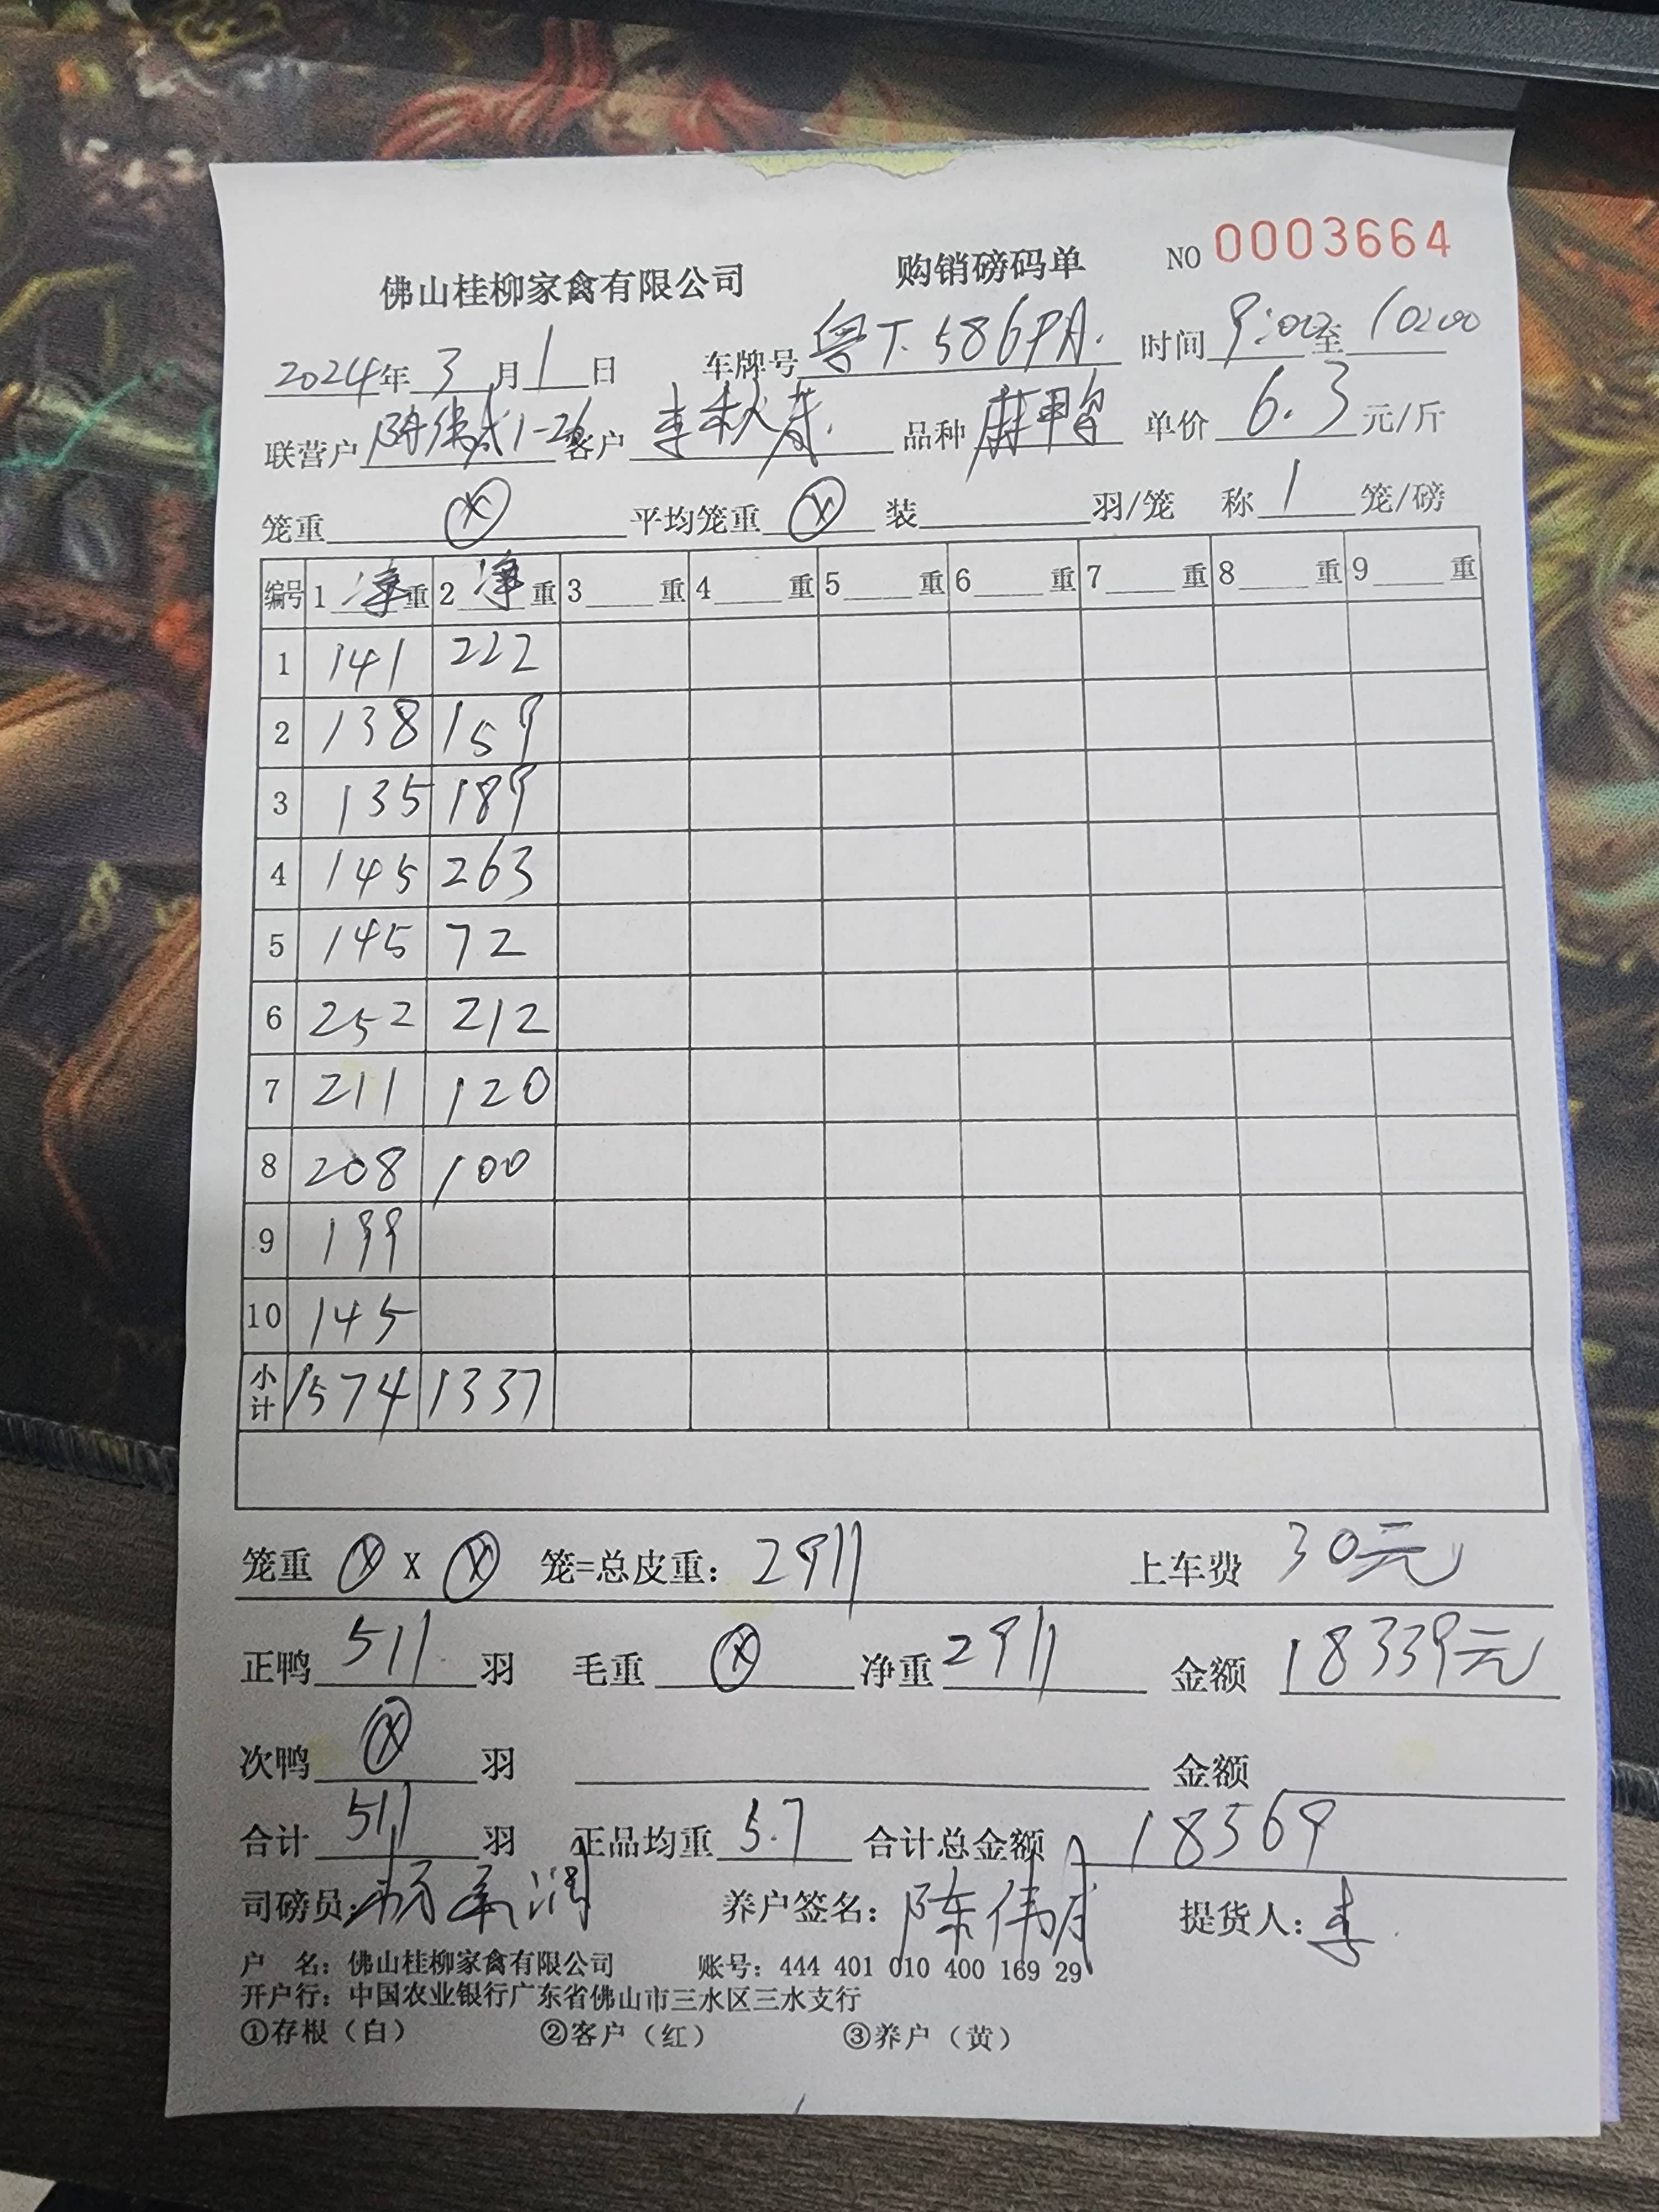 佛山桂柳家禽有限公司 购销磅码单 NO 0003664
2024年3月1日 车牌号 粤T.586PA. 时间 9:00至10:00
联营户 陈伟成1-26 客户 李秋 品种 麻鸭 单价 6.3 元/斤
笼重 ⓧ 平均笼重 ⓧ 装 羽/笼 称 1 笼/磅
编号 1 净重 2 净重 3 重 4 重 5 重 6 重 7 重 8 重 9 重
1 141 222
2 138 159
3 135 189
4 145 263
5 145 72
6 252 212
7 211 120
8 208 100
9 199
10 145
小计 1574 1337
笼重 ⓧ X ⓧ 笼=总皮重：2911 上车费 30元
正鸭 511 羽 毛重 ⓧ 净重 2911 金额 18339元
次鸭 ⓧ 羽 金额
合计 511 羽 正品均重 5.7 合计总金额 18569
司磅员： 养户签名：陈伟成 提货人：李
户 名：佛山桂柳家禽有限公司 账号：444 401 010 400 169 29
开户行：中国农业银行广东省佛山市三水区三水支行
①存根（白） ②客户（红） ③养户（黄）